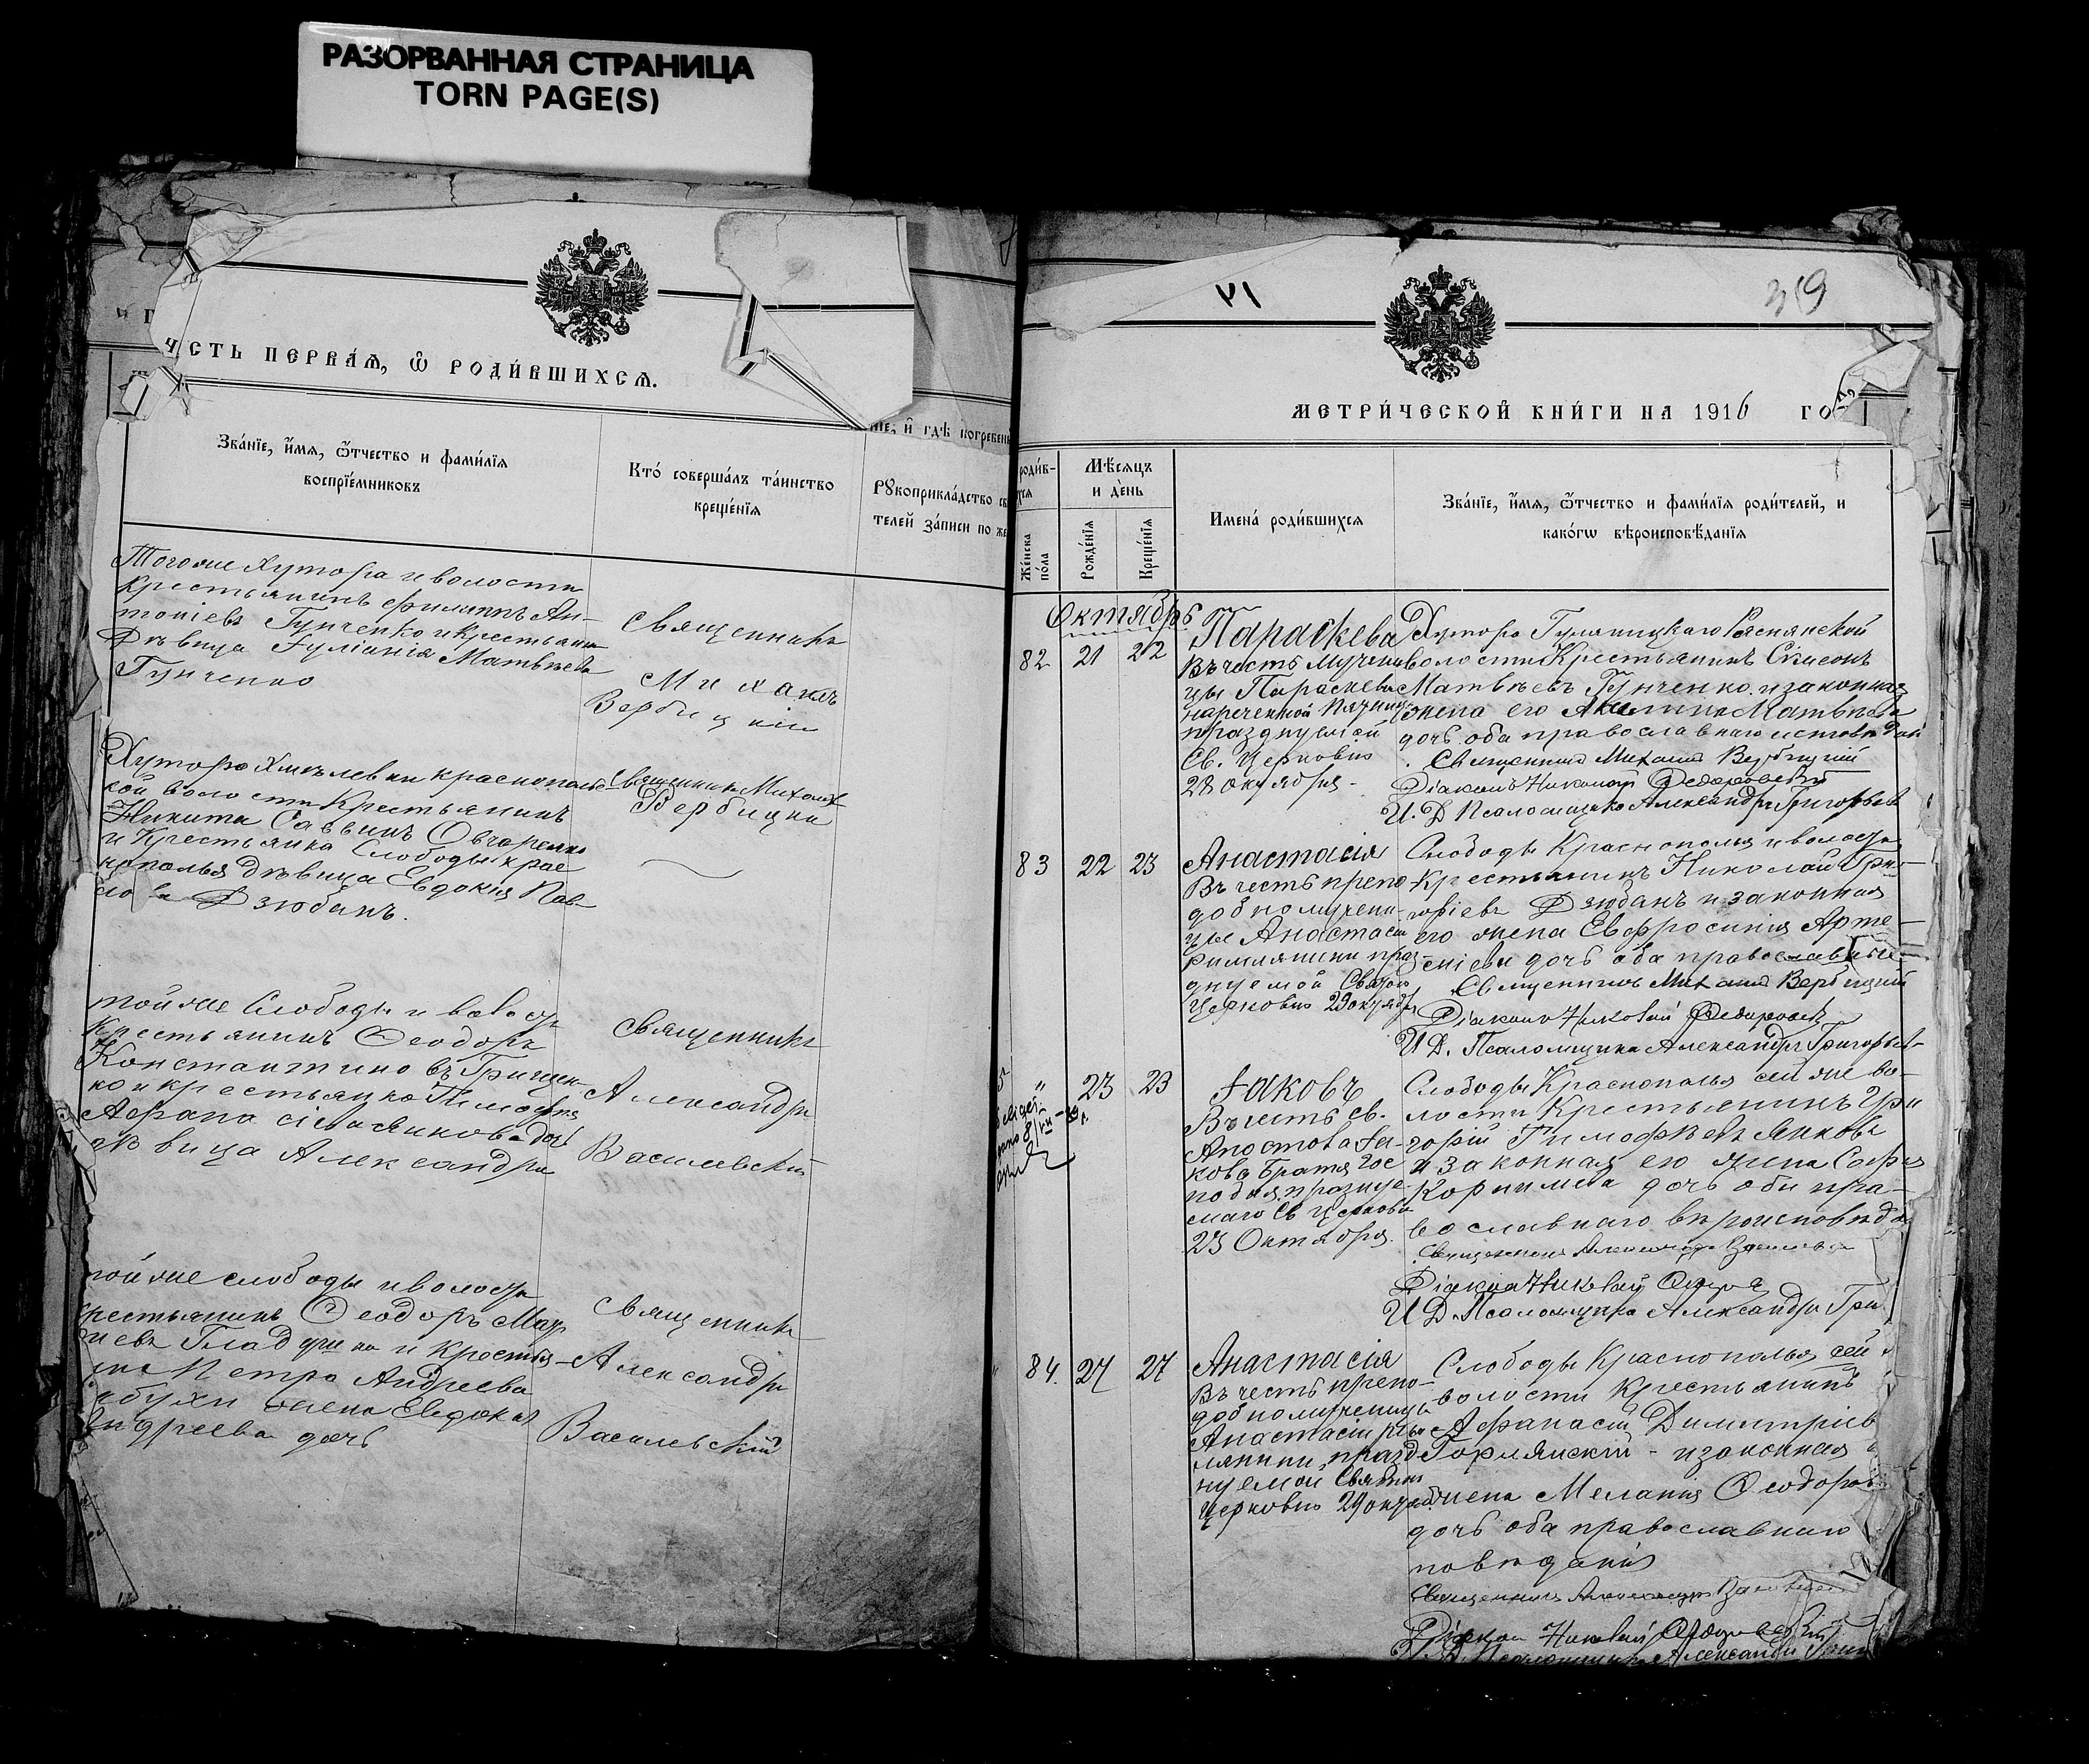 РАЗОРВАННАЯ СТРАНИЦА
TORN PAGE(S)
сть первая, ѡ роди́вшихся.
Зва́нїе, и́мя, ѿчество и фами́лїя
воспрїе́мниковъ
Кто́ соверша́лъ та́инство
креще́нїя
нїе, и́ гдѣ̀ погребен
Рꙋкоприкла́дство св
телей за́писи по же
Тогоже Хутора и волости
Крестьянинъ Филиппъ Ан-
тоніевъ Гунченко и крестьянка
Дѣвица Іуліанія Матвѣева
Гунченко
Священникъ
Михаилъ
Вербицкій
Хутора Хмѣлевки Краснополь-
ской волости Крестьянинъ
Никита Саввинъ Овчаренко
и Крестьянка Слободы Крас
нополья дѣвица Евдокія Пав
лова Дзюбанъ.
Священникъ Михаилъ
Вербицкій
той же Слободы и волости
Крестьянинъ Ѳеодоръ
Константиновъ Грищен-
ко и крестьянка Тимофея
дѣвица Александра
Священникъ
Александръ
Василевскій
той же слободы и волости
крестьянинъ Ѳеодоръ
и Крестья-
Петра Андреева
жена Евдокія
Андреева дочь
Священникъ
Александръ
Василевскій
21
319
метри́ческой кни́ги на 1916 го
роди́в-
хся
Мѣ́сяцъ
и де́нь
Же́нска
по́ла
Рожде́нїя
Креще́нїя
Имена́ роди́вшихся
Зва́нїе, и́мя, ѿчество и фами́лїя роди́телей, и
како́гѡ вѣроисповѣ́данїя
Октябрь
82 21 22
Параскева
Въ честь мучени
цы Параскевы
нареченной Пятница
празднуемой
Св. Церковію
28 октября -
Хутора Гуляницкаго Ряснянской
волости Крестьянинъ Симеонъ
Матвѣевъ Гунченко и законная
жена его Акилина Матвѣева
дочь оба православнаго исповѣданія
Священникъ Михаилъ Вербицкій
Діаконъ Николай Ѳедоровскій
И. Д. Псаломщика Александръ Григорьев
83 22 23
Анастасія
Въ честь препо
добномучени-
цы Анастасіи
римлянини праз-
днуемой Святою
Церковію 29 октября
Слободы Краснополья и волости
Крестьянинъ Николай Гри-
горіевъ Дзюбанъ и законная
его жена Евфросинія Арте-
міева дочь оба православные
Священникъ Михаилъ Вербицкій
Діаконъ Николай Ѳедоровскій
И Д. Псаломщика Александръ Григорьев
" 23 23
Іаковъ
Въ честь св.
Апостола Іа-
кова Братя Гос
подня празнуе-
маго Св Церковію
23 Октября.
Слободы Краснополья сей же во-
лости Крестьянинъ Гри
горій Тимофѣевъ Янковъ
и законная его жена Софія
Корнилиева дочь оба пра-
вославнаго вѣроисповѣда
Священникъ Александръ Василевскій
Діаконъ Николай
И Д. Псаломщика Александръ Гри
84. 27 27
Анастасія
Въ честь препо-
добномученицы
Анастасіи рим
лянини, празд
нуемой Святою
Церковію 29 октября
Слободы Краснополья сей
волости Крестьянинъ
Афанасій Димитріев
Горлянскій - и законная
жена Меланія Ѳеодоров
дочь оба православнаго
повѣданія
Священникъ Александръ Василевскій
Діаконъ Николай Ѳедоровскій
И Д. Псаломщика Александръ Григ